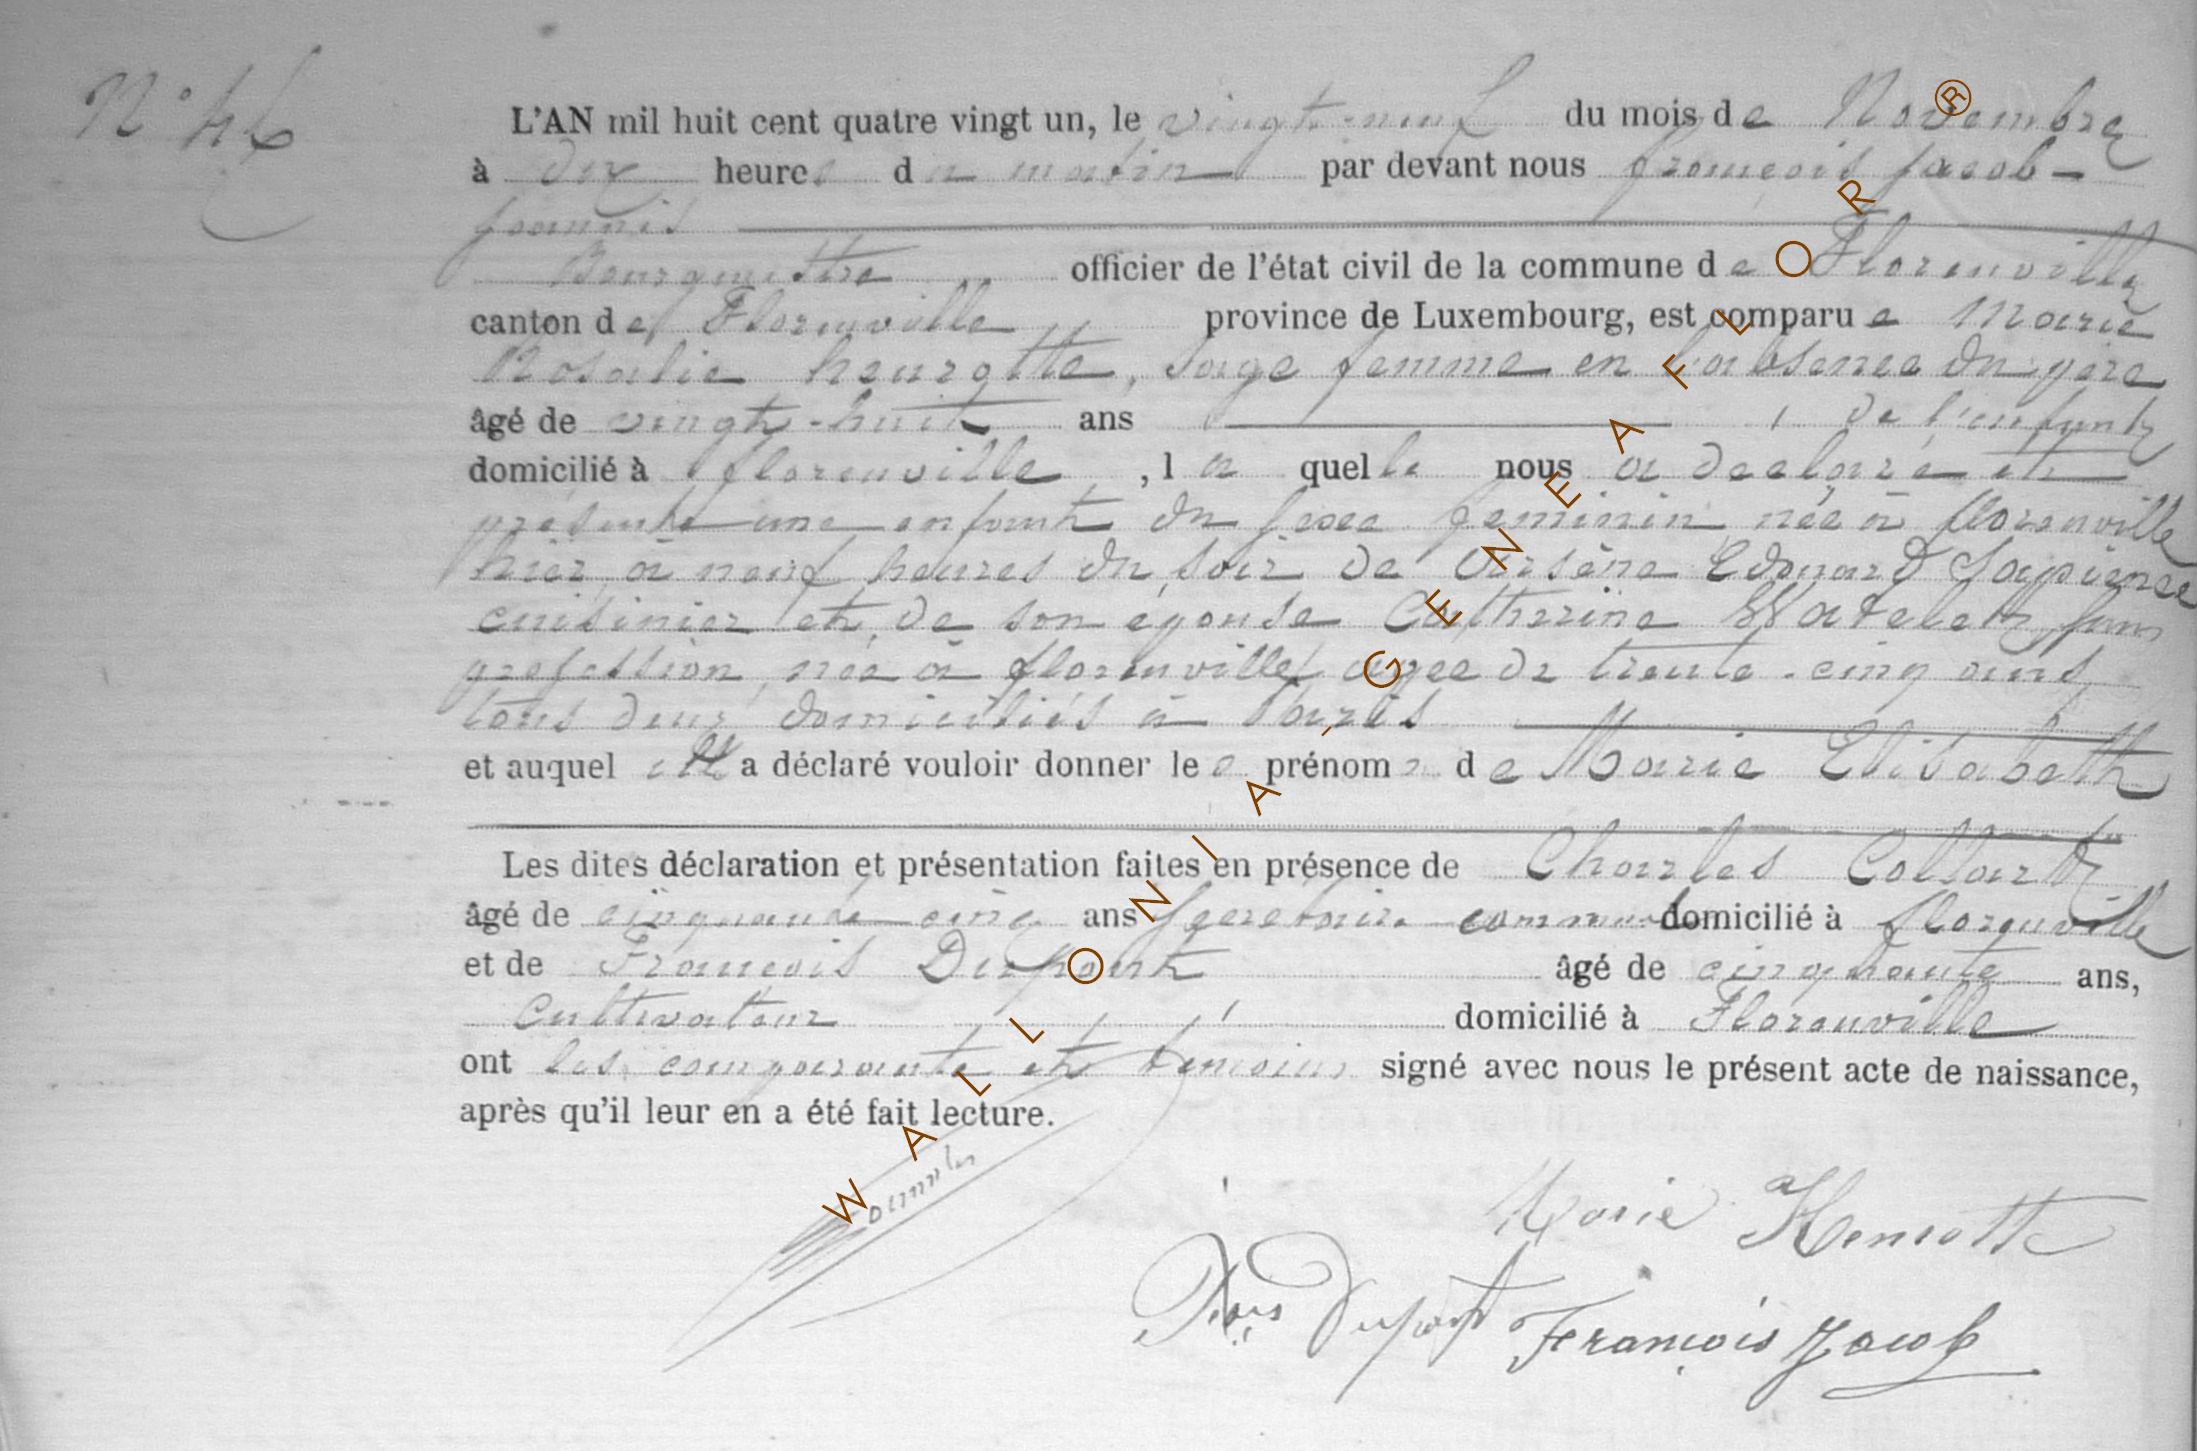 N° 46
L'AN mil huit cent quatre vingt un, le vingt-neuf du mois de Novembre
à dix heures du matin par devant nous françois jacob-
Bourgmestre officier de l'état civil de la commune de Florenville
canton de Florenville province de Luxembourg, est comparue Marie
Rosalie henrotte, sage femme en l'absence du père
âgé de vingt-huit ans , de l'enfant
domicilié à florenville, laquelle nous a déclaré et
présenté une enfant du sexe feminin née à florenville
hier, à neuf heures du soir de Arsène Edouard Sapience
cuisinier et de son épouse Catherine Watelet, sans
profession, née à florenville, agée de trente-cinq ans
tous deux domiciliés à Paris
et auquel elle a déclaré vouloir donner les prénoms de Marie Elisabeth
Les dites déclaration et présentation faites en présence de Charles Collart
âgé de cinquante cinq ans secretaire communal domicilié à florenville
et de François Dupont âgé de cinquante ans,
Cultivateur domicilié à Florenville
ont les comparante et temoins signé avec nous le présent acte de naissance,
après qu'il leur en a été fait lecture.
Marie Henrotte
Dupont François Jacob
WALLONIA - GENEAFLOR ®